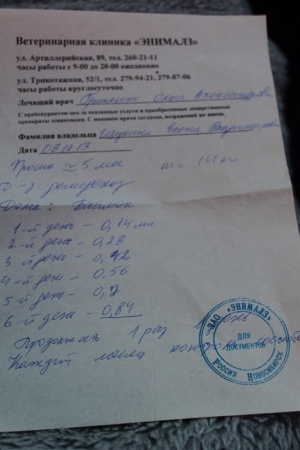 Ветеринарная клиника «ЭНИМАЛЗ»
ул. Артиллерийская, 89, тел. 260-21-11
часы работы с 9-00 до 20-00 ежедневно
ул. Трикотажная, 52/1, тел. 279-94-21, 279-87-06
часы работы круглосуточно
Лечащий врач Ольга Александровна
С прейскурантом цен за оказанные услуги и приобретенные лекарственные
препараты ознакомлен. С мнением врача согласен, возражений не имею.
Фамилия владельца
Дата
≈ 5 мес m=14 кг
Д-з демодекоз
Дома:
1-й день - 0,14 мл
2-й день - 0,28
3-й день - 0,42
4-й ден - 0,56
5-й ден - 0,7
6-й ден - 0,84
1 раз в день
Каждый месяц
ЗАО «ЭНИМАЛЗ»
ДЛЯ
ДОКУМЕНТОВ
РОССИЯ НОВОСИБИРСК